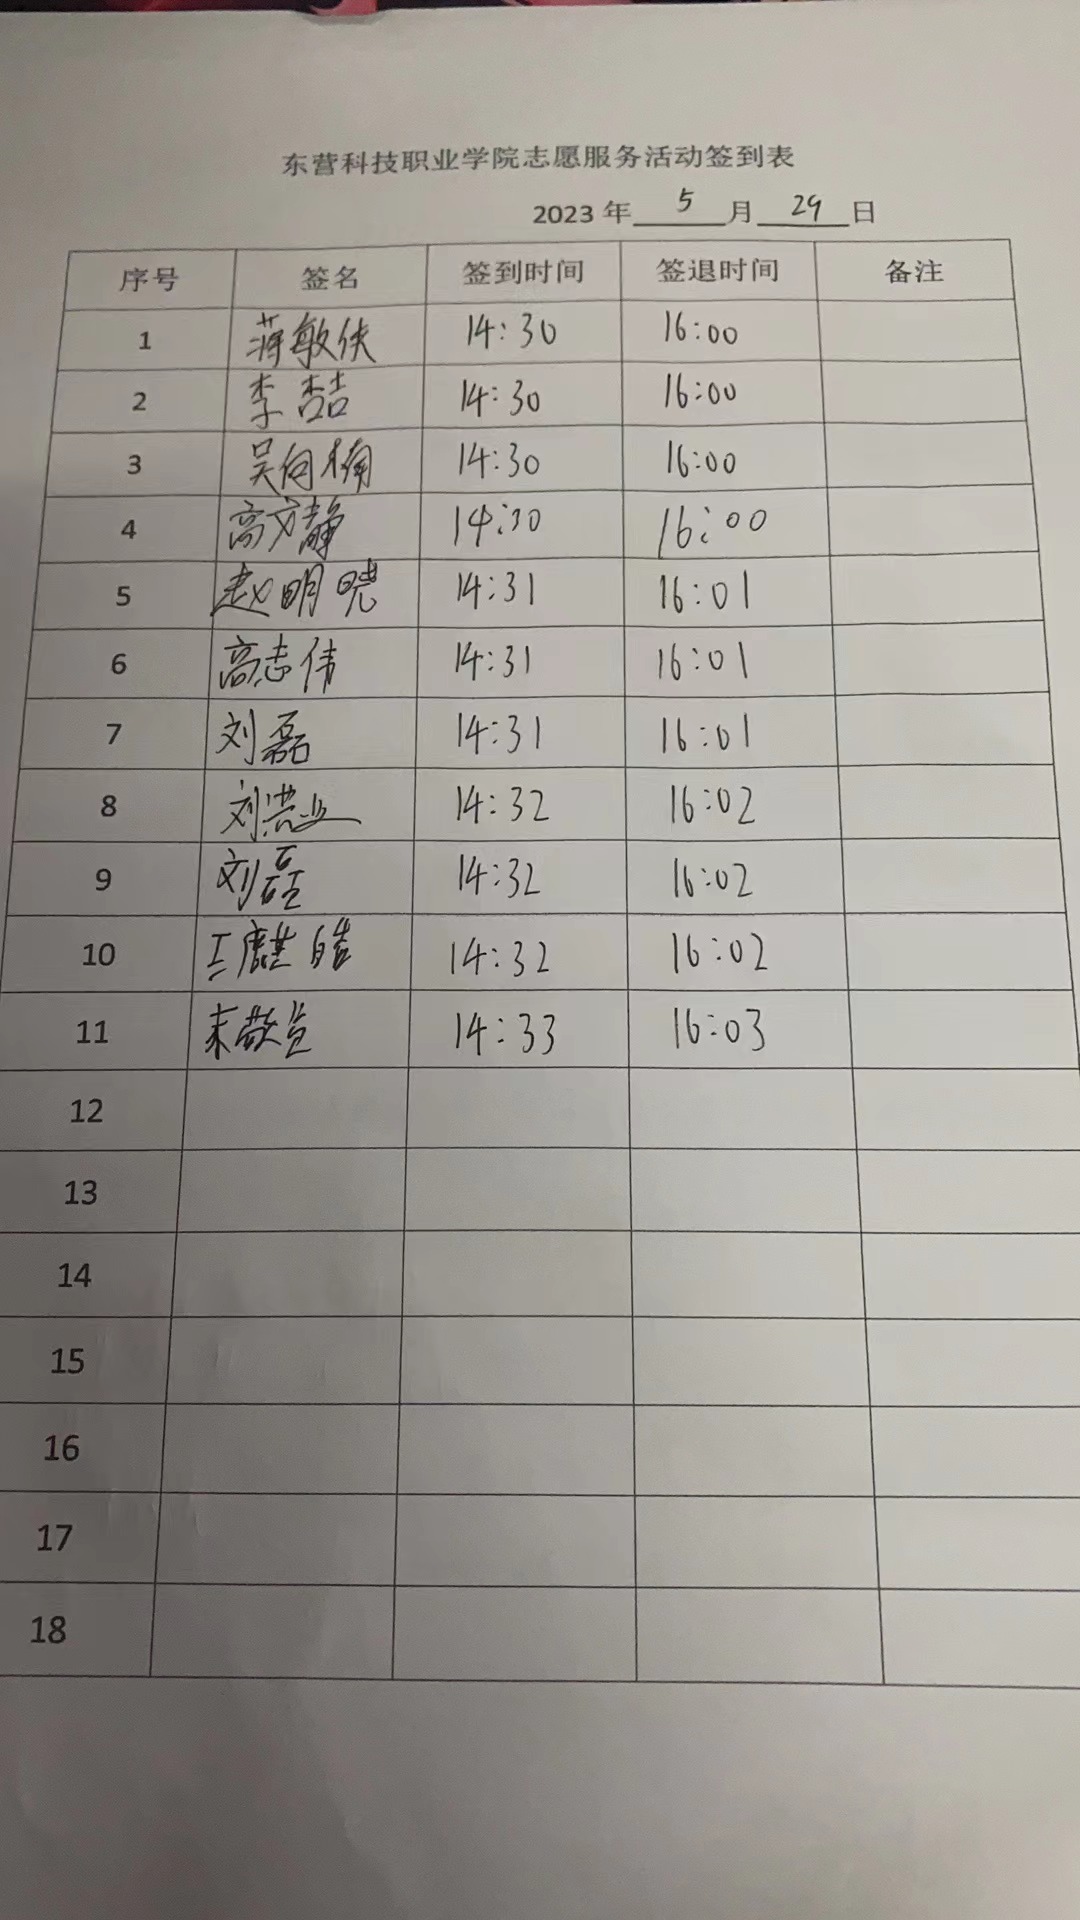 东营科技职业学院志愿服务活动签到表
2023 年 5 月 29 日
序号 签名 签到时间 签退时间 备注
1 蒋敏 14:30 16:00
2 李喆 14:30 16:00
3 吴向楠 14:30 16:00
4 高方静 14:30 16:00
5 赵明晓 14:31 16:01
6 高志伟 14:31 16:01
7 刘磊 14:31 16:01
8 刘洪业 14:32 16:02
9 刘磊 14:32 16:02
10 王麒皓 14:32 16:02
11 14:33 16:03
12
13
14
15
16
17
18